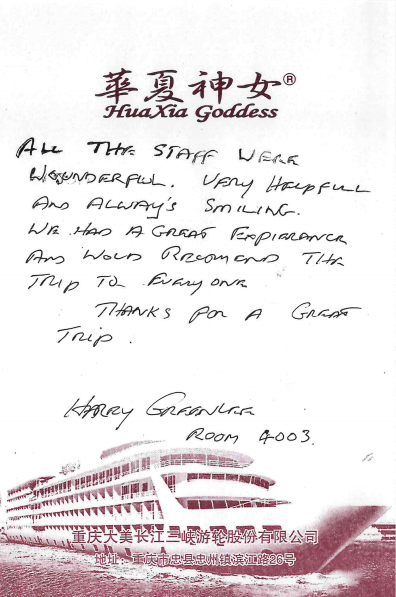 華夏神女®
HuaXia Goddess
ALL THE STAFF WERE
WOUNDERFUL. VERY HELPFULL
AND ALWAY'S SMILING.
WE HAD A GREAT EXPIERANCE
AND WOLD RECOMEND THE
TRIP TO EVERYONE
THANKS FOR A GREAT
TRIP.
HARRY GREENLEE
ROOM 4003.
重庆大美长江三峡游轮股份有限公司
地址：重庆市忠县忠州镇滨江路26号